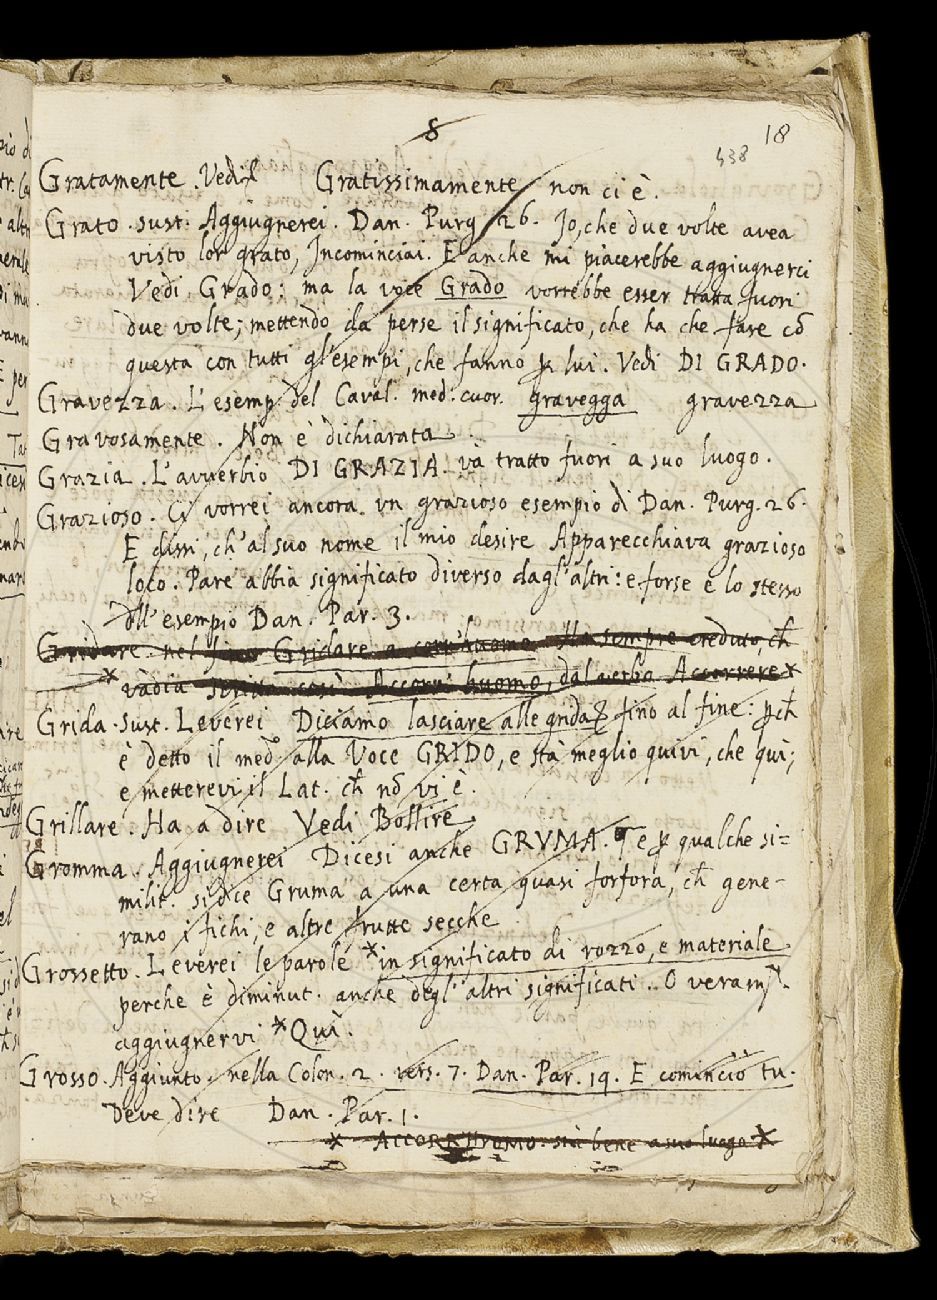 8
18
438
Gratamente. Vedil Gratissimamente non ci è.
Grato. sust. Aggiugnerei. Dan. Purg 26. Io, che due volte avea
visto lor grato, Incominciai. E anche mi piacerebbe aggiugnerci
Vedi Grado: ma la voce Grado vorrebbe esser tratta fuori
due volte; mettendo da perse il significato, che ha che fare cō
questa con tutti gl'esempi, che fanno ꝑ lui. Vedi DI GRADO.
Gravezza. L'esemp. del Caval. med. cuor. gravegga gravezza
Gravosamente. Non è dichiarata.
Grazia. L'avverbio DI GRAZIA. và tratto fuori a suo luogo.
Grazioso. Ci vorrei ancora. vn grazioso esempio di Dan. Purg. 26.
E dissi, ch'al suo nome il mio desire Apparecchiava grazioso
loco. Pare abbia significato diverso dagl'altri: e forse è lo stesso
all'esempio Dan. Par. 3.
Gridare. nel fine Gridare a corr'huomo. Ho sempre creduto, ch̄
* vadia scritto così Accorri huomo, dal verbo Accorrere *
Grida. Sust. Leverei Diciamo lasciare alle grida &c fino al fine: ꝑch̄
è detto il med.o alla Voce GRIDO, e stà meglio quivi, che quì;
e metterevi il Lat. ch̄ nō vi è.
Grillare. Ha a dire Vedi Bollire
Gromma. Aggiugnerei Dicesi anche GRVMA. e ꝑ qualche si=
milit. si dice Gruma a una certa quasi forfora, ch̄ gene-
rano i fichi, e altre frutte secche
Grossetto. Leverei le parole *in significato di rozzo, e materiale
perche è diminut. anche degl'altri significati.. O veram.te
aggiugnervi * Quì.
Grosso. Aggiunto. nella Colon. 2. vers. 7. Dan. Par. 19. E cominciò tu.
deve dire Dan. Par. 1.
* ACCORR'HUOMO. stà bene a suo luogo *